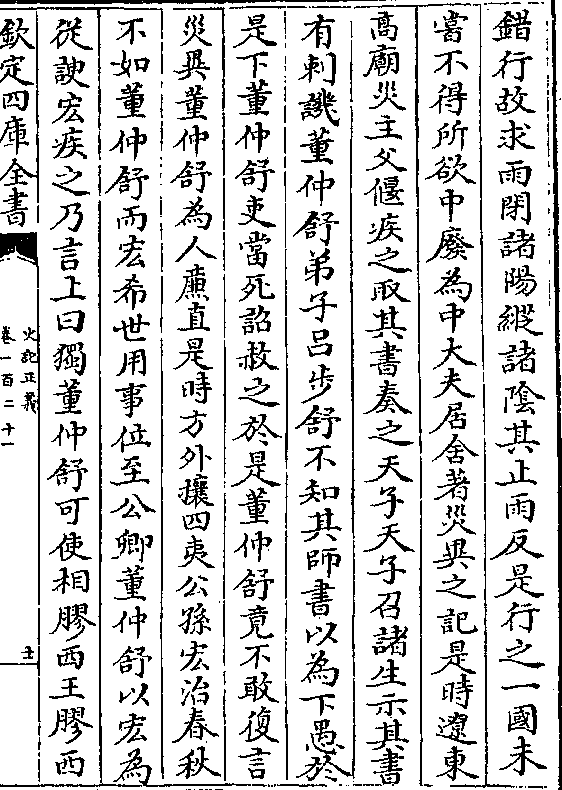 錯行故求雨閉諸陽縱諸隂其止雨反是行之一國未
嘗不得所欲中廢為中大夫居舍著災異之記是時遼東
髙廟災主父偃疾之取其書奏之天子天子召諸生示其書
有刺譏董仲舒弟子吕步舒不知其師書以為下愚於
是下董仲舒吏當死詔赦之於是董仲舒竟不敢復言
災異董仲舒為人亷直是時方外攘四夷公孫宏治春秋
不如董仲舒而宏希世用事位至公卿董仲舒以宏為
從諛宏疾之乃言上曰獨董仲舒可使相膠西王膠西
欽定四庫全書
史記正義
卷一百二十一